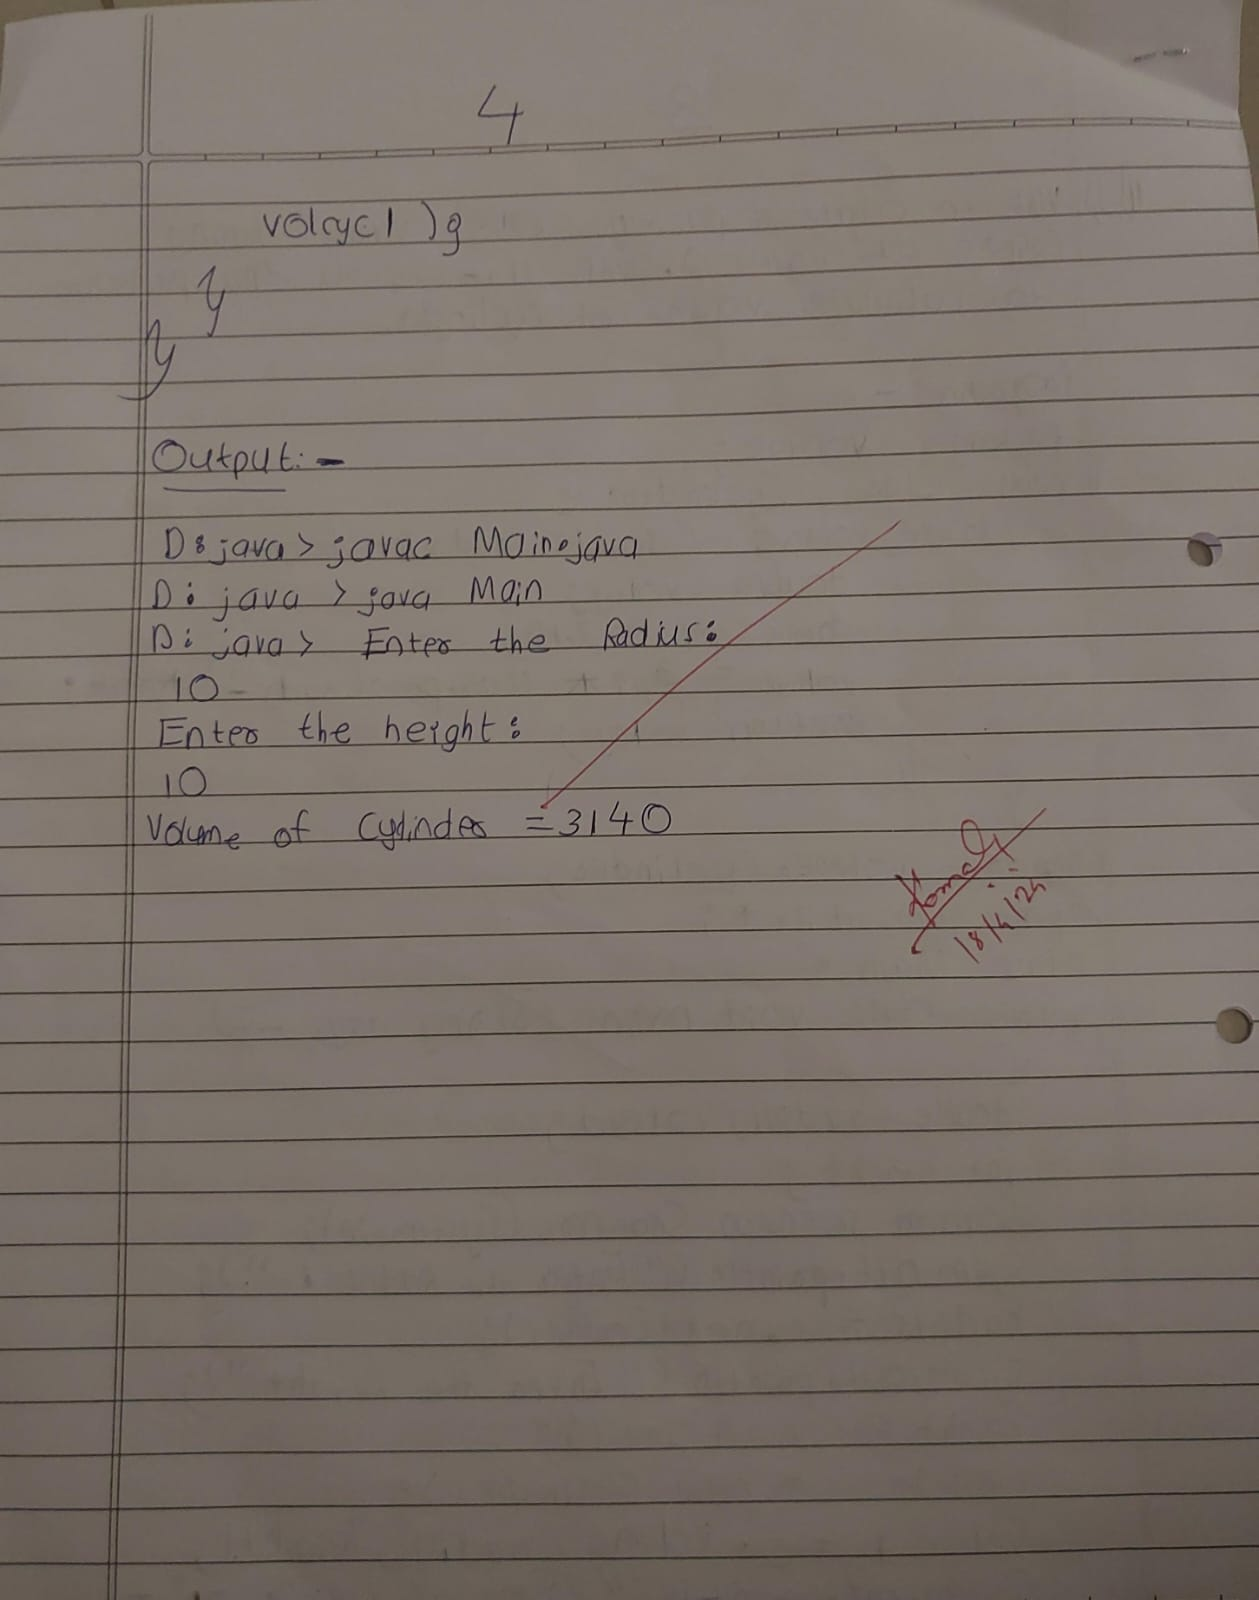 4
volcyl);
}
}
Output:-
D:java> javac Main.java
D: java > java Main
D: java> Enter the Radius:
10
Enter the height:
10
Volume of Cylinder = 3140
Komal
18/4/24